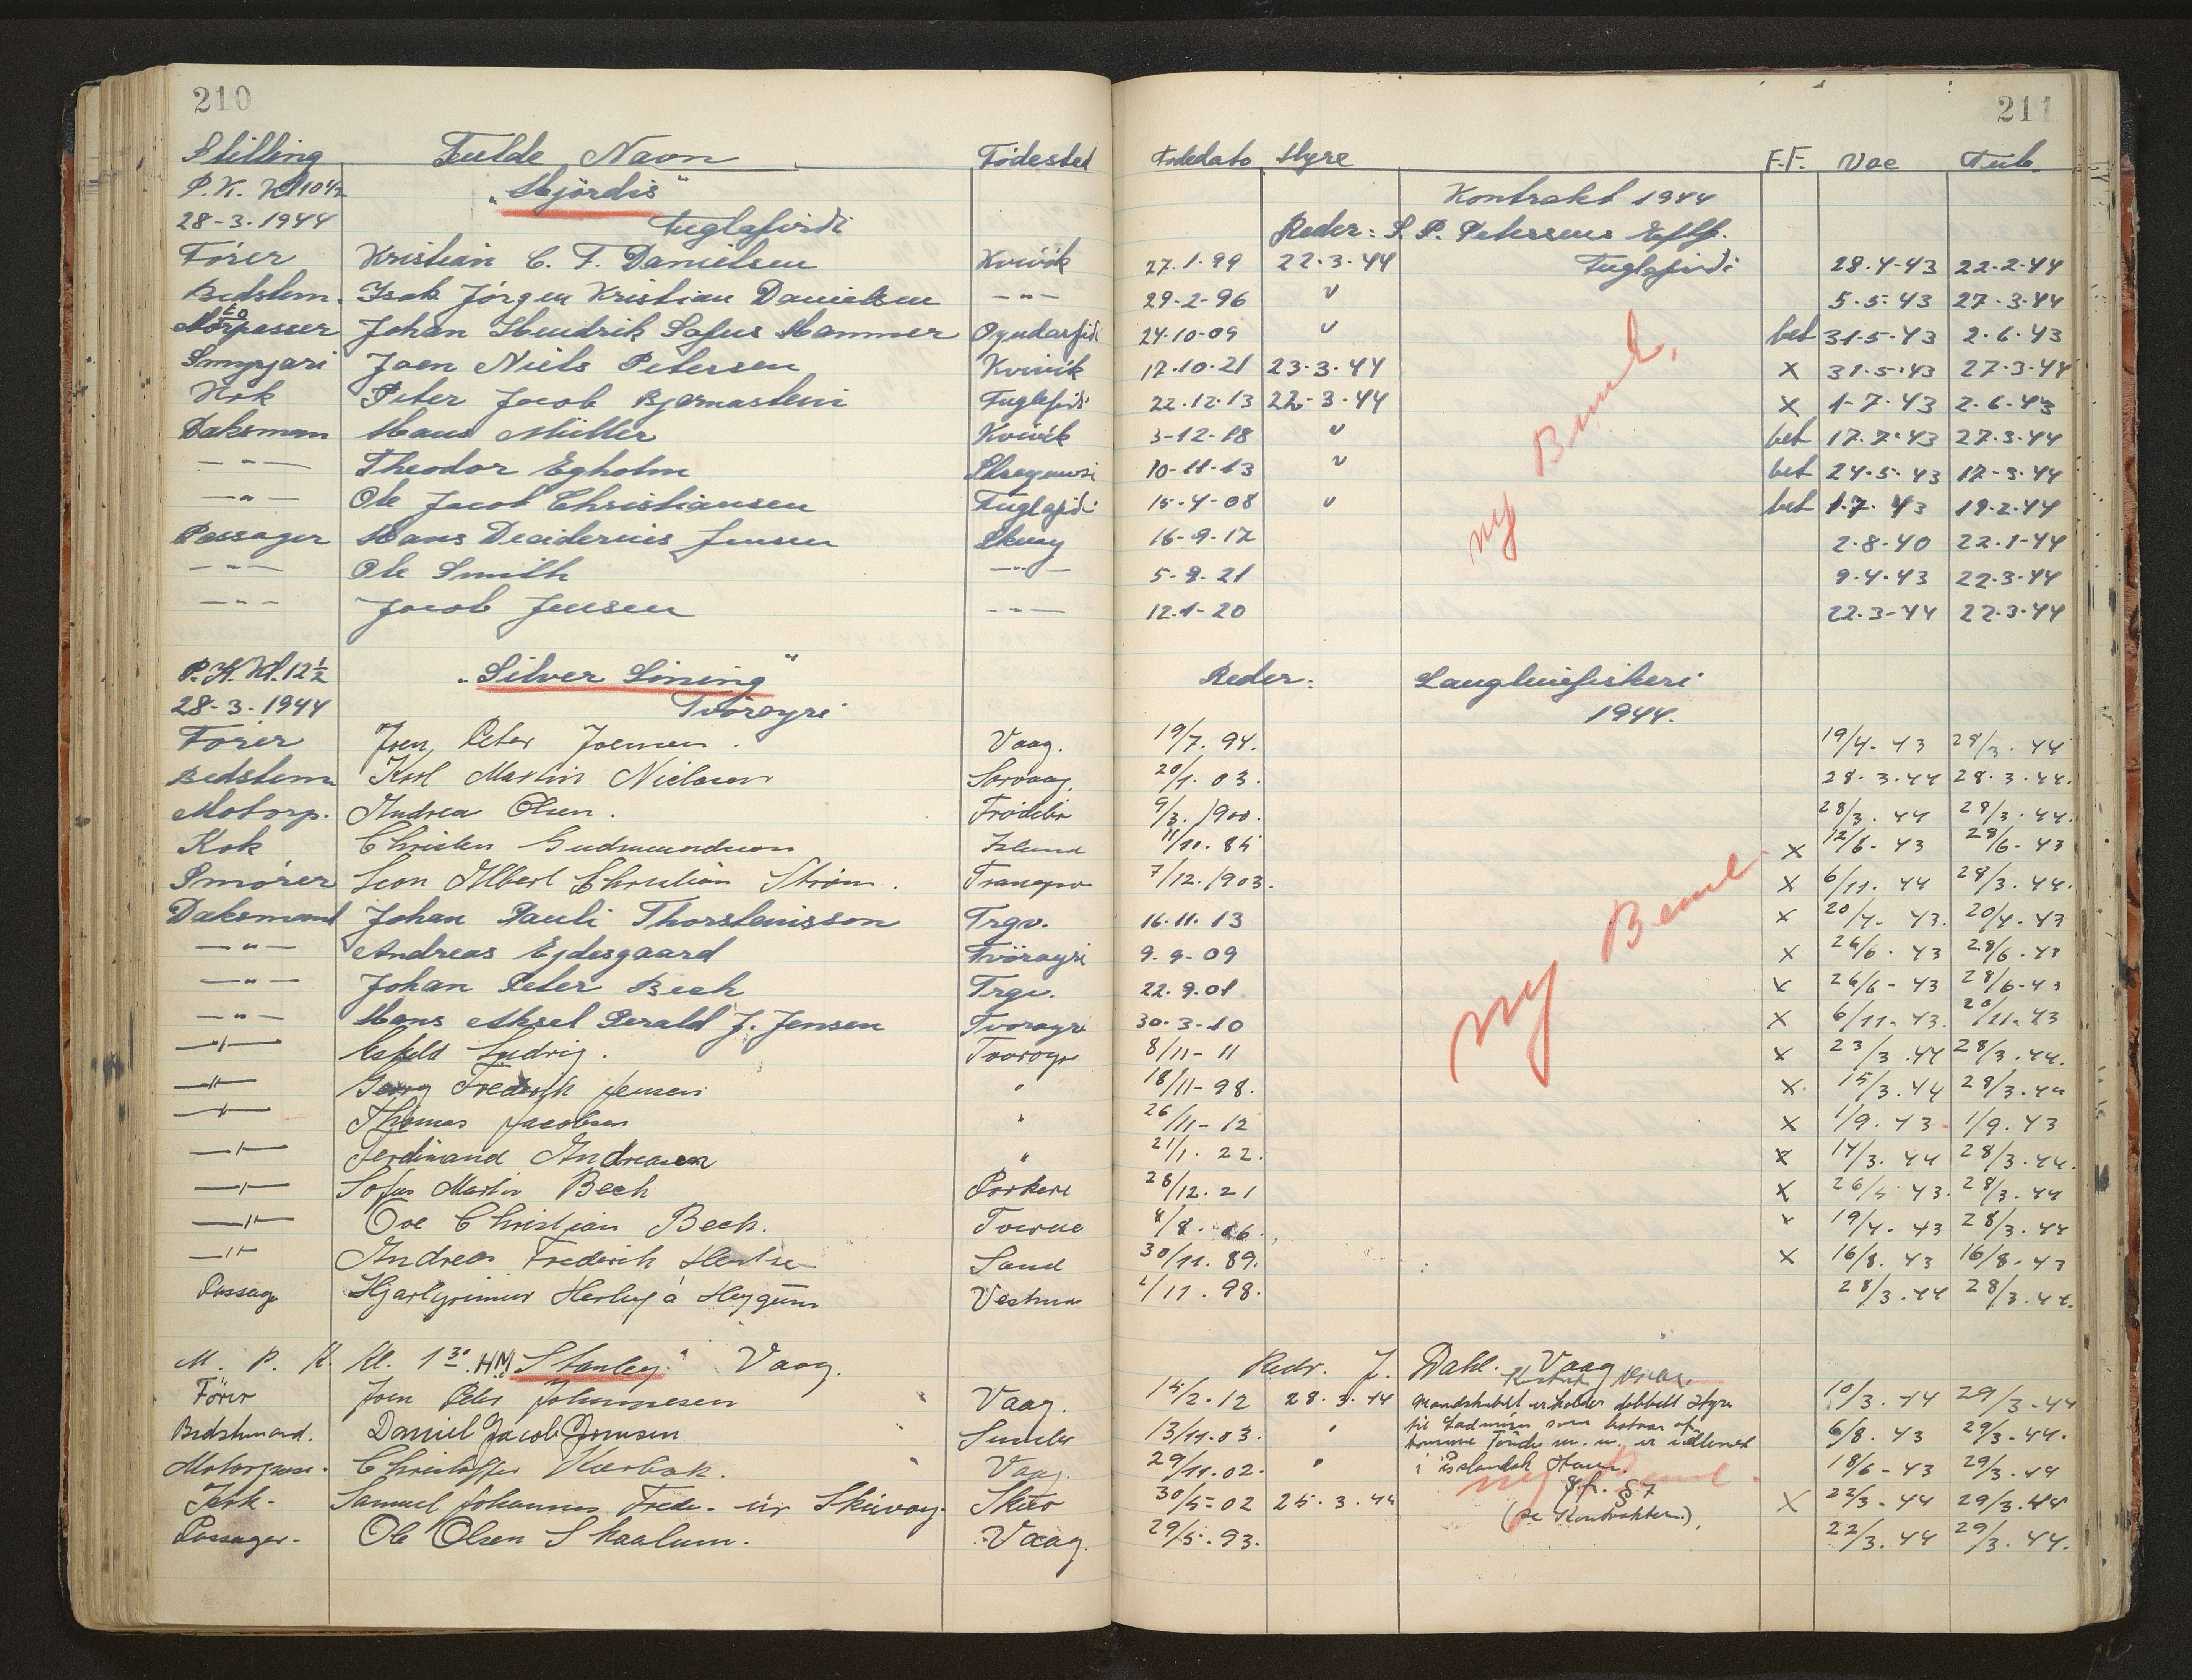 210
211
Stilling Fulde Navn Fødested Fødedato Hyre F.F. Vac Tub.
P.K. Kl 10 1/2 "Hjördis" Kontrakt 1944
28-3-1944 Fuglafirdi Reder: S. P. Petersens Eftf.
Förer Kristian C. F. Danielsen Kvivik 27.1.99 22.3.44 Fuglafirdi 28.4-43 22.2-44
Bedstem. Isak Jörgen Kristian Danielsen -"- 29-2-96 " 5.5.43 27.3.44
Motorpasser Johan Hendrik Sofus Hammer Oyndarfirdi 24.10-09 " bet 31.5.43 2.6.43
Smyrjari Joen Niels Petersen Kvivik 17.10.21 23.3.44 X 31.5.43 27.3.44
Kok Peter Jacob Bjarnastein Fuglafirdi 22.12.13 22.3.44 X 1-7-43 2.6.43
Daksman Hans Müller Kvivik 3-12-18 " bet 17.7.43 27.3.44
-"- Theodor Egholm 10-11-13 " bet 24.5.43 17-3.44
-"- Ole Jacob Christiansen Fuglafjrdi 15-4-08 " bet 1.7.43 19.2.44
Passager Hans Deciderius Jensen Skuoy 16-9.17 2.8.40 22.1-44
-"- Ole Smith -"- 5-9.21 9.4.43 22.3.44
-"- Jacob Jensen -"- 12.1-20 22.3-44 22.3.44
ny Beml.
P.K. Kl. 12 1/2 "Silver Lining" Reder: Langlinefiskeri
28-3-1944 Tvöroyri 1944.
Förer Joen Peter Joensen. Vaag. 19/7. 94. 19/4-43 28/3.44
Bedstem Karl Martin Nielsen Sorvaag. 20/1.03. 28.3.44 28.3.44.
Motorp. Andrea Olsen. Frodebö 9/3.1900. 28/3.44 28/3.44.
Kok Christen Gudmundsson Island 11/10.85 X 12/6-43 28/6-43
Smörer Leon Albert Christian Ström. Trangisv 7/12.1903. X 6/11.44 28/3.44.
Daksmand Johan Pauli Thorsteinsson Trgv. 16.11.13 X 20/4-43. 20/4-43
-"- Andreas Ejdesgaard Tvöroyri 9.9-09 X 26/6.43 28/6.43
-"- Johan Peter Bech Trgv. 22.9.01 X 26/6-43 28/6-43
-"- Hans Aksel Gerald J. Jensen Tvoroyri 30.3-10 X 6/11-43. 20/11-43
-"- Ludvig. Tvoroyri 8/11-11 X 23/3.44 28/3.44.
-"- Georg Frederik Jensen " 18/11-98. X. 15/3.44 28/3.44
-"- Thomas Jacobsen " 26/11-12 X 1/9.43 1/9.43
-"- Ferdinand Andreasen " 21/1.22. X 14/3.44 28/3.44.
-"- Sofus Martin Bech Porkeri 28/12.21 X 26/5 43. 28/3.44
-"- Ove Christian Bech. 8/8.16. X 19/4-43 28/3.44
-"- Andreas Frederik Sand 30/11.89. X 16/8.43 16/8-43
Passag Hjartgrimur Herluf á Heygum Vestma 1/11.98. 28/3.44 28/3.44.
ny Beml
M. P. K. Kl. 1 30 HM "Stanley" Vaag. Redr. J. Dahl. Vaag
Förer Joen Peter Johannesen Vaag. 15/2.12 28.3.44 Mandskabet erholder dobbelt Hyre 10/3.44 29/3-44
Bedstmand. Daniel Jacob Joensen Sumbö 13/11.03. " 6/8.43 29/3-44.
Motorpass. Christoffer Kjærbæk. Vaag. 29/11.02. " i islandsk Havn. 18/6-43 29/3.44
ny Beml.
Kok. Samuel Johannes Fredr. úr Skúvoy. Skuö 30/5-02 25.3.44 §7 X 22/3-44 29/3.44
(se Kontrakten).
Passager. Ole Olsen Skaalum. Vaag. 29/5.93. 22/3.44 29/3.44.